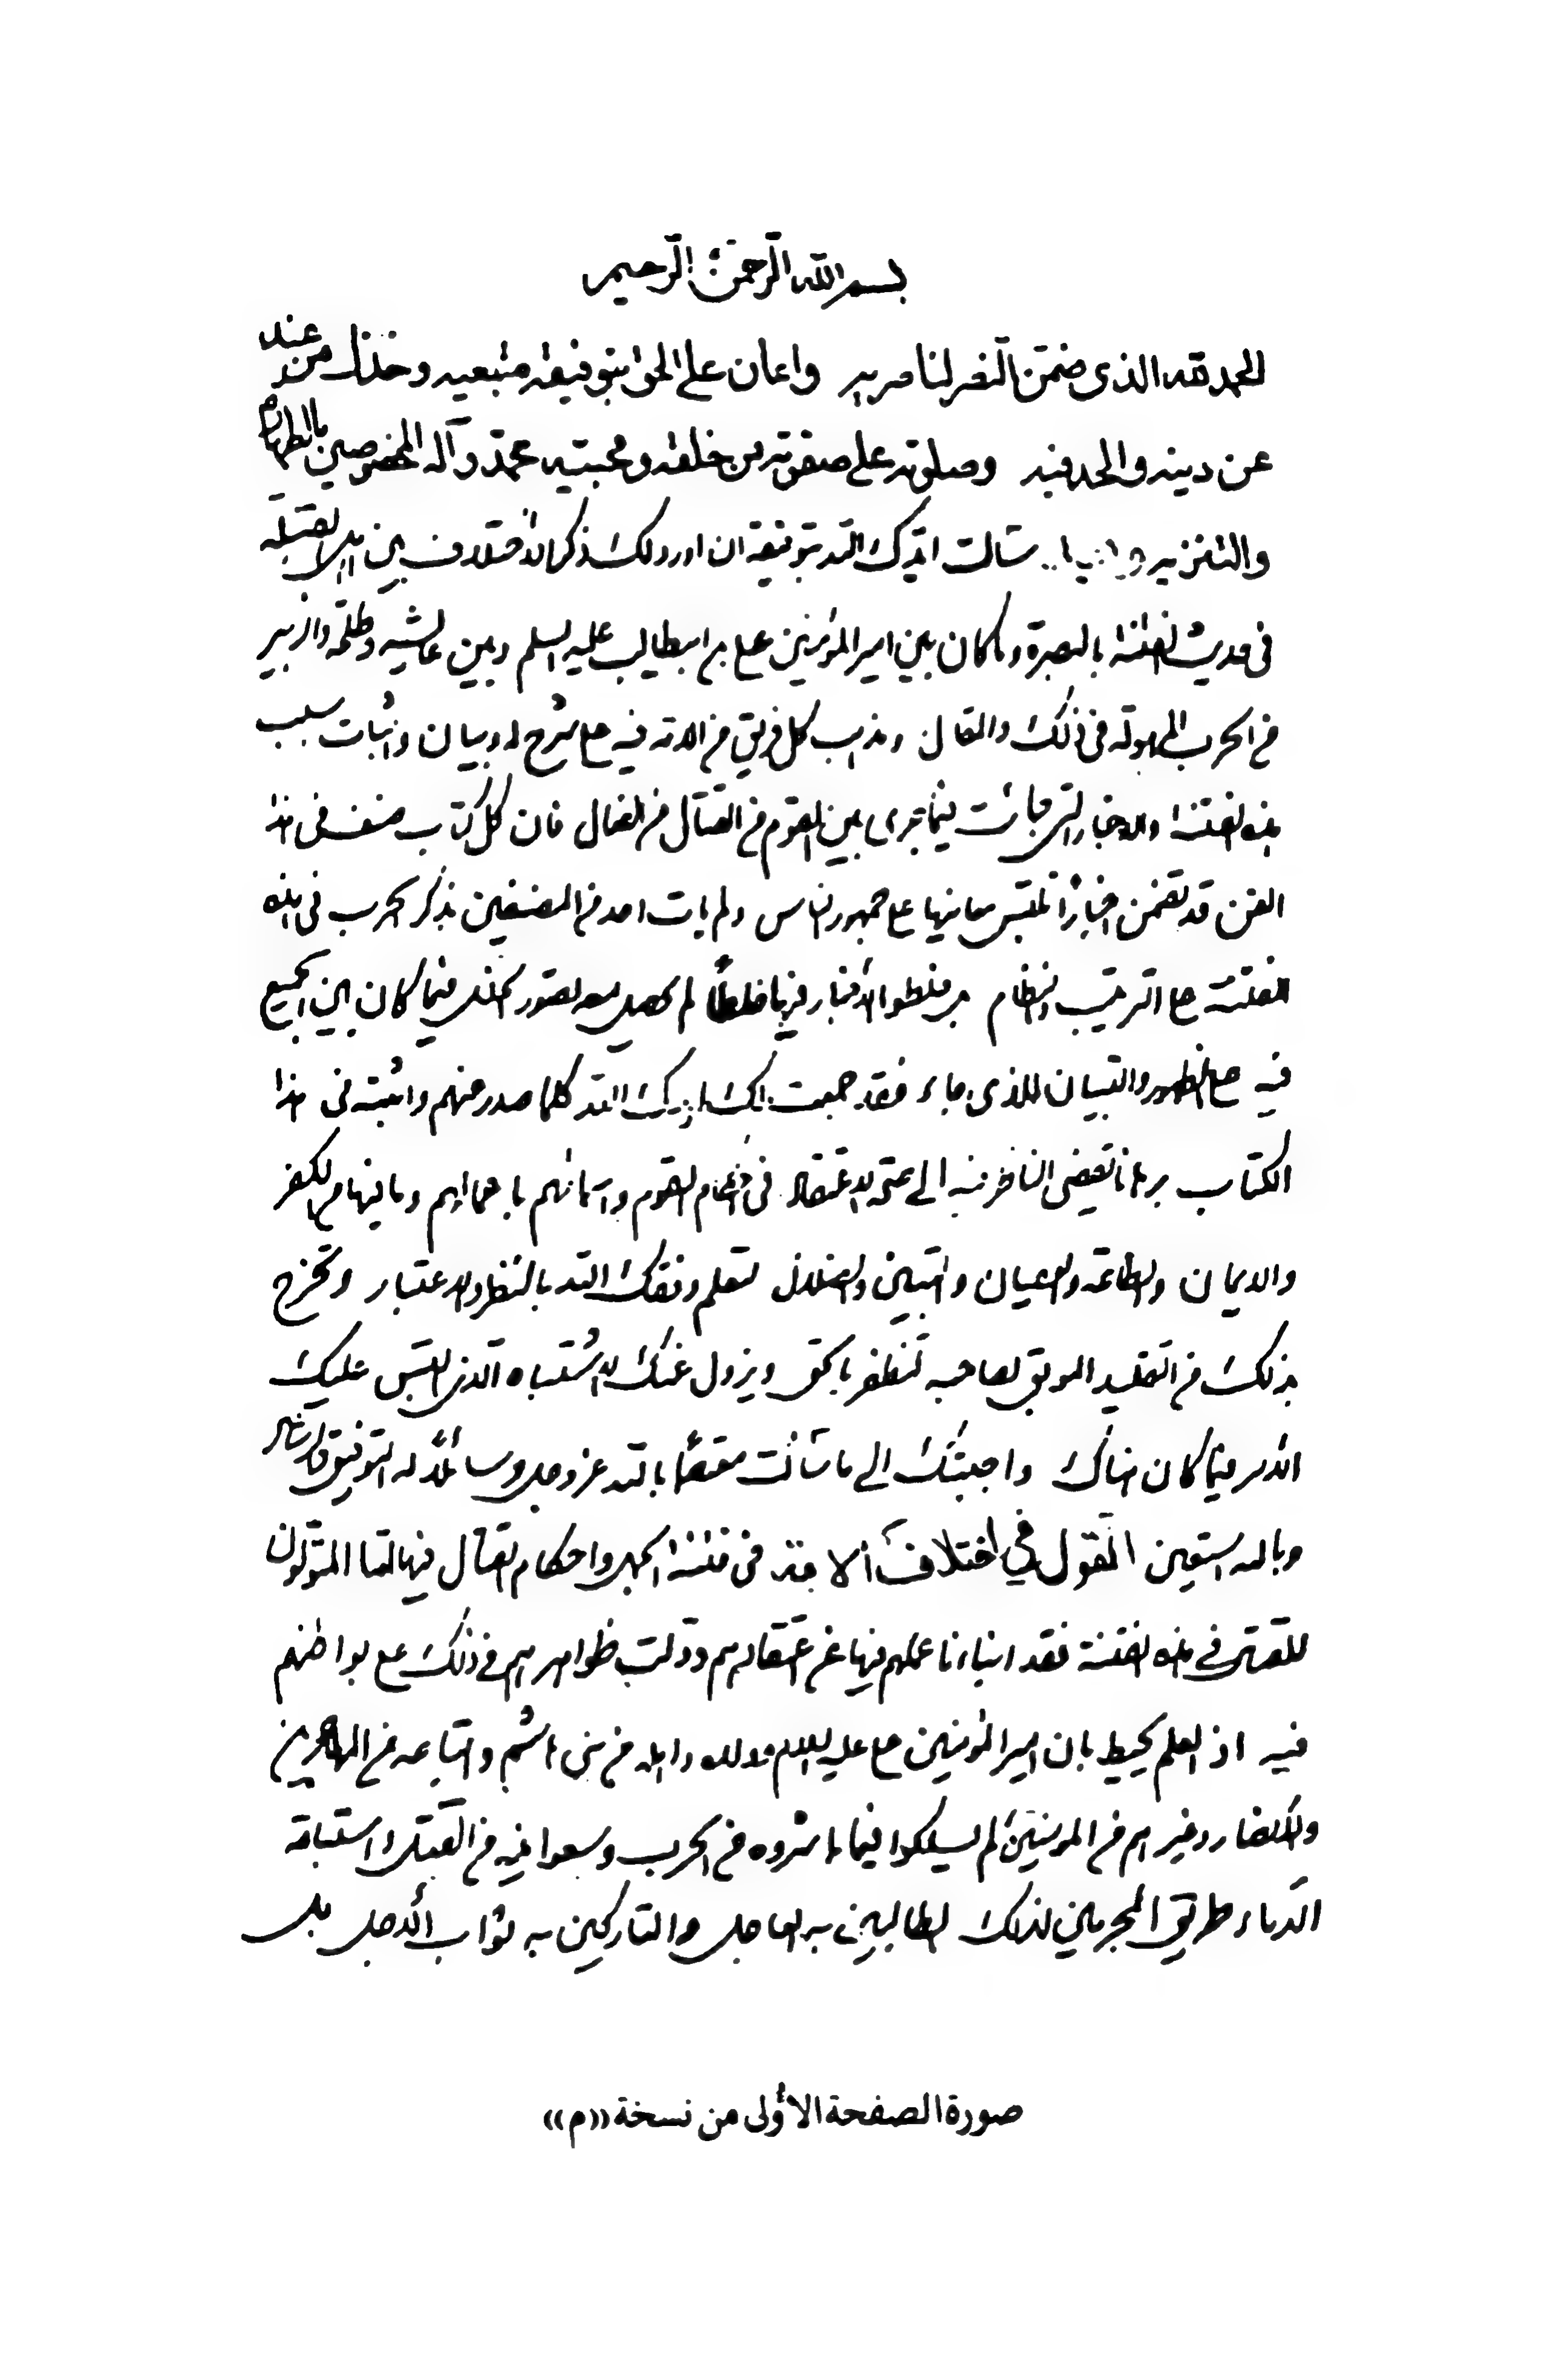 بسم الله الرحمن الرحيم
الحمد لله الذي ضمن النصر لناصريه واعان على الحق بتوفيقه متبعيه وخذل من عند
عن دينه والحد فيه وصلوته على صفوته من خلقه ومحبتيه محمد وآله المخصوصين بالطهارة
والتنزيه سألت ايدك الله بتوفيقه ان اورد لك ذكر الاختلاف بين اهل القبلة
فى حديث الفتنة بالبصرة وما كان بين امير المؤمنين على بن ابيطالب عليه السلم وبين عايشه وطلحة والزبير
من الحرب المهولة فى ذلك والقتال ومذهب كل فريق من الامة فيه على شرح له وبيان واثبات سبب
هذه الفتنة والاخبار التى جائت فيما جرى بين القوم من القتال من الفعال فان كل كتاب صنف فى هذا
الفن قد تضمن اخباراً تلتبس معانيها على جمهور الناس ولم يات احد من المصنفين بذكر الحرب فى هذه
الفتنة على الترتيب والنظام بل خلطوا الاخبار فيها خلطاً لم يحصل معه تصور الخلل فيما كان بين الجميع
فيه على الظهور والتبيان للذى جاء فقد جمعت لك ايدك الله كلما صدر منهم واثبته فى هذا
الكتاب برهانا يفضى الناظر فيه الى صحة الاعتقاد فى احكام القوم واسمائهم باعمالهم وما فيها من الكفر
والايمان والطاعة والعصيان والتبين والضلال لتعلم وفقك الله بالنظر والاعتبار وتخرج
بذلك من التقليد الموبق لصاحبه لتظفر بالحق ويزول عنك الاشتباه الذى التبس عليك
الامر فيما كان هناك واجبتك الى ما سالت معتصماً بالله عز وجل وسائلاً له التوفيق والرشاد
وبالله استعين القول في اختلاف الامة فى فتنة الجمل واحكام القتال فيها اما المتولون
للقتال فى هذه الفتنة فقد انبأنا عملهم فيها عن اعتقادهم ودلت ظواهرهم فى ذلك على بواطنهم
فيه اذ العلم يحيط بان امير المؤمنين على عليه السلام وولده واهله من بنى هاشم واتباعه من المهاجرين
والانصار وغيرهم من المومنين لم يسلكوا فيما باشروه من الحرب وسعوا فيه من القتل واستباحة
الدماء طريق المجرمين لذلك الطالبين به العاجل والتاركين به ثواب الاجل بل
صورة الصفحة الأولى من نسخة «م»